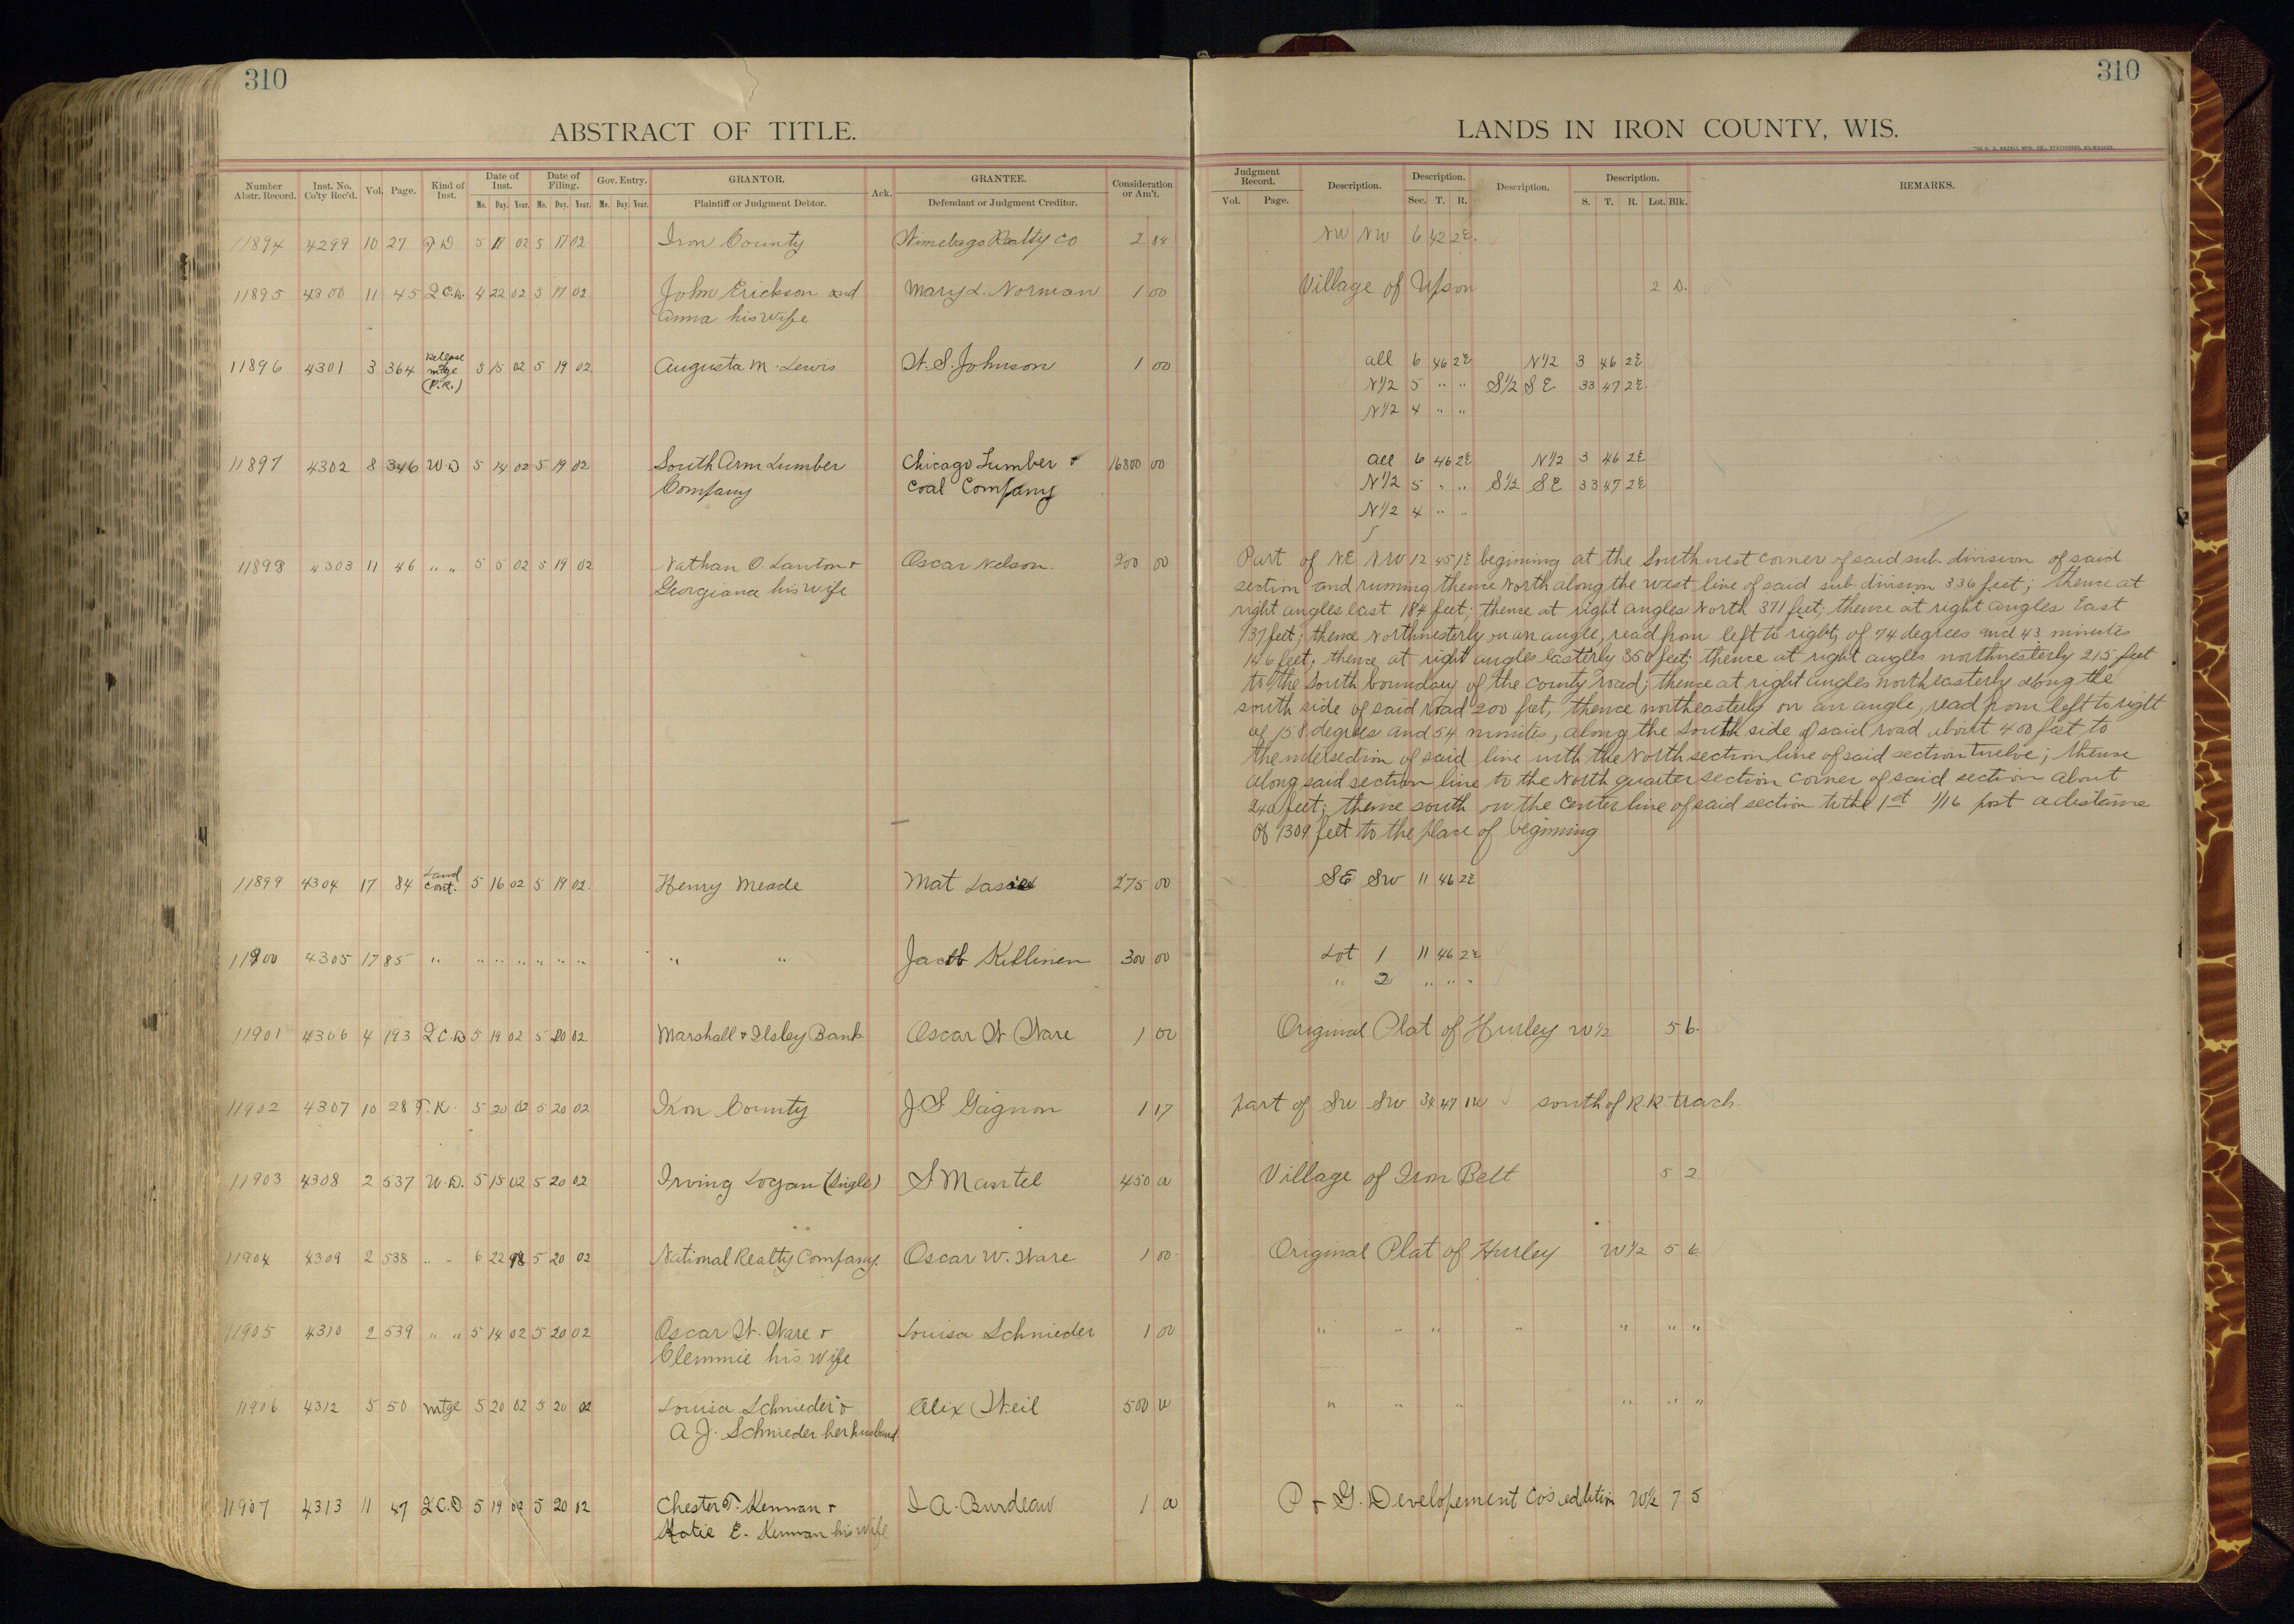 310
310
ABSTRACT OF TITLE.
LANDS IN IRON COUNTY, WIS.
Number Abstr. Record. Inst. No. Co'ty Rec'd. Vol. Page. Kind of Inst. Date of Inst. Date of Filing. Gov. Entry. GRANTOR. Ack. GRANTEE. Consideration or Am't.
Mo. Day. Year. Mo. Day. Year. Mo. Day. Year. Plaintiff or Judgment Debtor. Defendant or Judgment Creditor.
Judgment Record. Description. Description. Description. Description. REMARKS.
Vol. Page. Sec. T. R. S. T. R. Lot. Blk.
11894 4299 10 27 02 5 17 02 Iron County Realty Co 2 84 NW NW 6 42 2E.
11895 4300 11 45 Q.C.D. 4 22 02 5 17 02 John Erickson and Mary L. Norman 1 00 Village of Upson 2 D.
Anna his wife
11896 4301 3 364 Release mtge (P.R.) 3 15 02 5 19 02 Augusta M. Lewis W. S. Johnson 1 00 all 6 46 2E N1/2 3 46 2E
N1/2 5 " " S1/2 SE 33 47 2E
N1/2 4 " "
11897 4302 8 346 W.D 5 14 02 5 19 02 South Arm Lumber Chicago Lumber + 16800 00 all 6 46 2E N1/2 3 46 2E
Company Coal Company N1/2 5 " " S1/2 SE 33 47 2E
N1/2 4 " "
11898 4303 11 46 " " 5 5 02 5 19 02 Nathan O. Lawton + Oscar Nelson. 200 00
Georgiana his wife
Part of NE NW 12 45 1E begining at the Southwest corner of said sub-division of said
section and running thence North along the west line of said sub-division 336 feet; thence at
right angles east 184 feet; thence at right angles North 371 feet; thence at right angles East
137 feet; thence Northwesterly on an angle, read from left to right, of 74 degrees and 43 minutes
146 feet; thence at right angles Easterly 350 feet; thence at right angles northwesterly 215 feet
to the South boundary of the county road; thence at right angles northeasterly along the
south side of said road 200 feet, thence northeasterly on an angle, read from left to right
of 158 degrees and 54 minutes, along the South side of said road about 400 feet to
the intersection of said line with the North section line of said section twelve; thence
along said section line to the North quarter section corner of said section about
240 feet; thence south on the center line of said section to the 1st 1/16 post a distance
of 1309 feet to the place of begining
11899 4304 17 84 Land Cont. 5 16 02 5 19 02. Henry Meade Mat 275 00 SE SW 11 46 2E
11900 4305 17 85 " " " " " " " " " Jacob Killinen 300 00 Lot 1 11 46 2E
" 2 " " "
11901 4306 4 193 Q.C.D 5 19 02 5 20 02 Marshall + Ilsley Bank Oscar W. Ware 1 00 Original Plat of Hurley W1/2 5 6.
11902 4307 10 28 5 20 02 5 20 02 Iron County J. S Gagnon 1 17 part of SW SW 34 47 1W south of R.R. track.
11903 4308 2 537 W.D. 5 15 02 5 20 02 Irving Logan (Single) S Mantel 450 00 Village of Iron Belt 5 2
11904 4309 2 538 " " 6 22 98 5 20 02 National Realty Company. Oscar W. Ware 1 00 Original Plat of Hurley W1/2 5 6.
11905 4310 2 539 " " 5 14 02 5 20 02 Oscar W. Ware + Louisa Schnieder 1 00 " " " " " " "
Clemmie his wife
11906 4312 5 50 mtge 5 20 02 5 20 02 Louisa Schnieder + Alex Weil 500 00 " " " " " "
A J. Schnieder her husband
11907 4313 11 47 Q.C.D. 5 19 02 5 20 02 Chester T. Kennan + I A. Burdeau 1 00 P + G. Developement Co's addition W1/2 7 5
Katie E. Kennan his wife